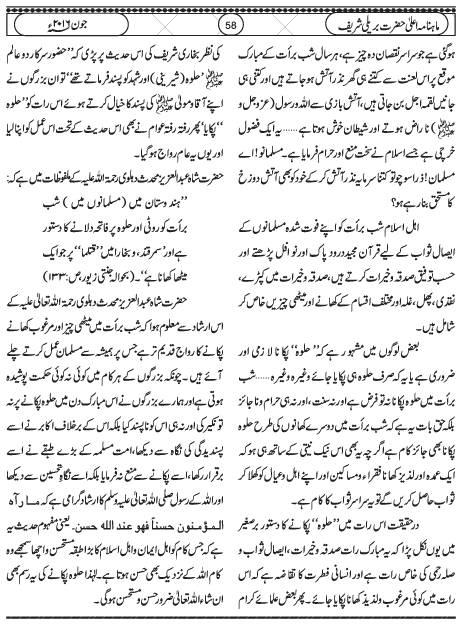 ماہنامہ اعلیٰ حضرت بریلی شریف
58
جون ۲۰۱۶ء
ہوگئی ہے جو سراسر نقصان دہ چیز ہے، ہر سال شب برأت کے مبارک
موقع پر اس لعنت سے کتنے ہی گھر نذر آتش ہو جاتے ہیں اور کتنی ہی
جانیں لقمۂ اجل بن جاتی ہیں، آتش بازی سے اللہ و رسول (عزوجل و
ﷺ) ناراض ہوتے اور شیطان خوش ہوتا ہے.......یہ ایک فضول
خرچی ہے جسے اسلام نے سخت منع اور حرام فرمایا ہے۔ مسلمانو! اے
مسلمان! ذرا سوچو تو کتنا سرمایہ نذر آتش کر کے خود کو بھی آتش دوزخ
کا مستحق بنا رہے ہو؟
اہل اسلام شب برأت کو اپنے فوت شدہ مسلمانوں کے
ایصال ثواب کے لیے قرآن مجید و درود پاک اور نوافل پڑھتے اور
حسب توفیق صدقہ و خیرات کرتے ہیں، صدقہ و خیرات میں کپڑے،
نقدی، پھل، غلہ اور مختلف اقسام کے کھانے اور میٹھی چیزیں خاص کر
شامل ہیں۔
بعض لوگوں میں مشہور ہے کہ ”حلوہ“ پکانا لازمی اور
ضروری ہے یا یہ کہ صرف حلوہ ہی پکایا جائے وغیرہ وغیرہ.......شب
برأت میں حلوہ پکانا نہ تو فرض ہے اور نہ سنت، اور نہ ہی حرام و ناجائز
بلکہ حق بات یہ ہے کہ شب برأت میں دوسرے کھانوں کی طرح حلوہ
پکانا بھی جائز کام ہے اگرچہ یہ بھی اس نیک نیتی کے ساتھ ہی ہو کہ
ایک عمدہ اور لذیذ کھانا فقراء و مساکین اور اپنے اہل و عیال کو کھلا کر
ثواب حاصل کریں گے تو یہ سراسر ثواب کا کام ہے۔
درحقیقت اس رات میں ”حلوہ“ پکانے کا دستور برصغیر
میں یوں نکل پڑا کہ یہ مبارک رات صدقہ و خیرات، ایصال ثواب و
صلہ رحمی کی خاص رات ہے اور انسانی فطرت کا تقاضہ ہے کہ اس
میں کوئی مرغوب ولذیذ کھانا پکایا جائے۔ پھر بعض علمائے کرام
کی نظر بخاری شریف کی اس حدیث پر پڑی کہ ”حضور سرکار دو عالم
ﷺ حلوہ (شیرینی) اور شہد کو پسند فرماتے تھے“ تو ان بزرگوں نے
اپنے آقا و مولیٰ ﷺ کی پسند کا خیال کرتے ہوئے اس رات کو ”حلوہ
پکایا“ پھر رفتہ رفتہ عوام نے بھی اس حدیث کے تحت اس عمل کو اپنا لیا
اور یوں یہ عام رواج ہو گیا۔
حضرت شاہ عبدالعزیز محدث دہلوی رحمۃ اللہ علیہ کے ملفوظات میں ہے کہ:
”ہندوستان میں (مسلمانوں میں) شب
برأت کو روٹی اور حلوہ پر فاتحہ دلانے کا دستور
ہے اور سمرقند، و بخارا میں ”قتلما“ پر جو ایک
میٹھا کھانا ہے“۔ (بحوالہ جنتی زیور، ص:۱۳۳)
حضرت شاہ عبدالعزیز محدث دہلوی رحمۃ اللہ تعالیٰ علیہ کے
اس ارشاد سے معلوم ہوا کہ شب برأت میں میٹھی چیز اور مرغوب کھانے
پکانے کا رواج قدیم تر ہے جس پر ہمیشہ سے مسلمان عمل کرتے چلے
آئے ہیں۔ چونکہ بزرگوں کے ہر کام میں کوئی نہ کوئی حکمت پوشیدہ
ہوتی ہے اور ہمارے بزرگوں نے اس مبارک دن میں حلوہ پکانے پر نہ
تو انکار کیا اور نہ ہی اس کو ناپسند کیا بلکہ اس کے برخلاف اکابر نے اسے
پسندیدگی کی نگاہ سے دیکھا، امت مسلمہ کے بڑے طبقے نے اسے
برقرار رکھا، اسے پکانے سے منع نہ فرمایا بلکہ اسے نگاہ تحسین سے دیکھا
اور اللہ کے رسول صلی اللہ تعالیٰ علیہ وسلم کا ارشاد گرامی ہے کہ مارآہ
المؤمنون حسناً فهو عند الله حسن. یعنی مفہوم حدیث یہ
ہے کہ جس کام کو اہل ایمان و اہل اسلام کا بڑا طبقہ مستحسن و اچھا سمجھے وہ
کام اللہ کے نزدیک بھی حسن ہوتا ہے۔ لہٰذا حلوہ پکانے کی یہ رسم بھی
ان شاء اللہ تعالیٰ ضرور حسن و مستحسن ہوگی۔